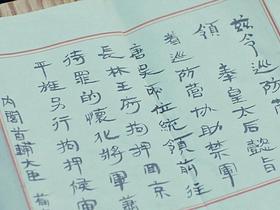 兹令巡防
領 奉皇太后懿旨
着巡防營協助禁軍
位統領前往
長林王府拘押回京
待罪的懷化將軍蕭
平旌另行拘押候審
内閣首輔大臣 荀